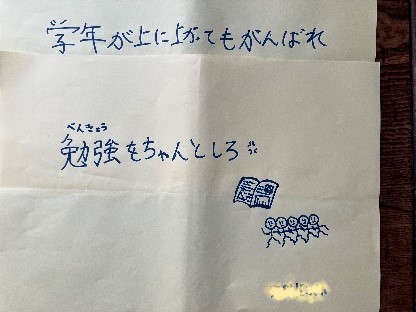 学年が上に上がてもがんばれ
べんきょう
勉強をちゃんとしろ